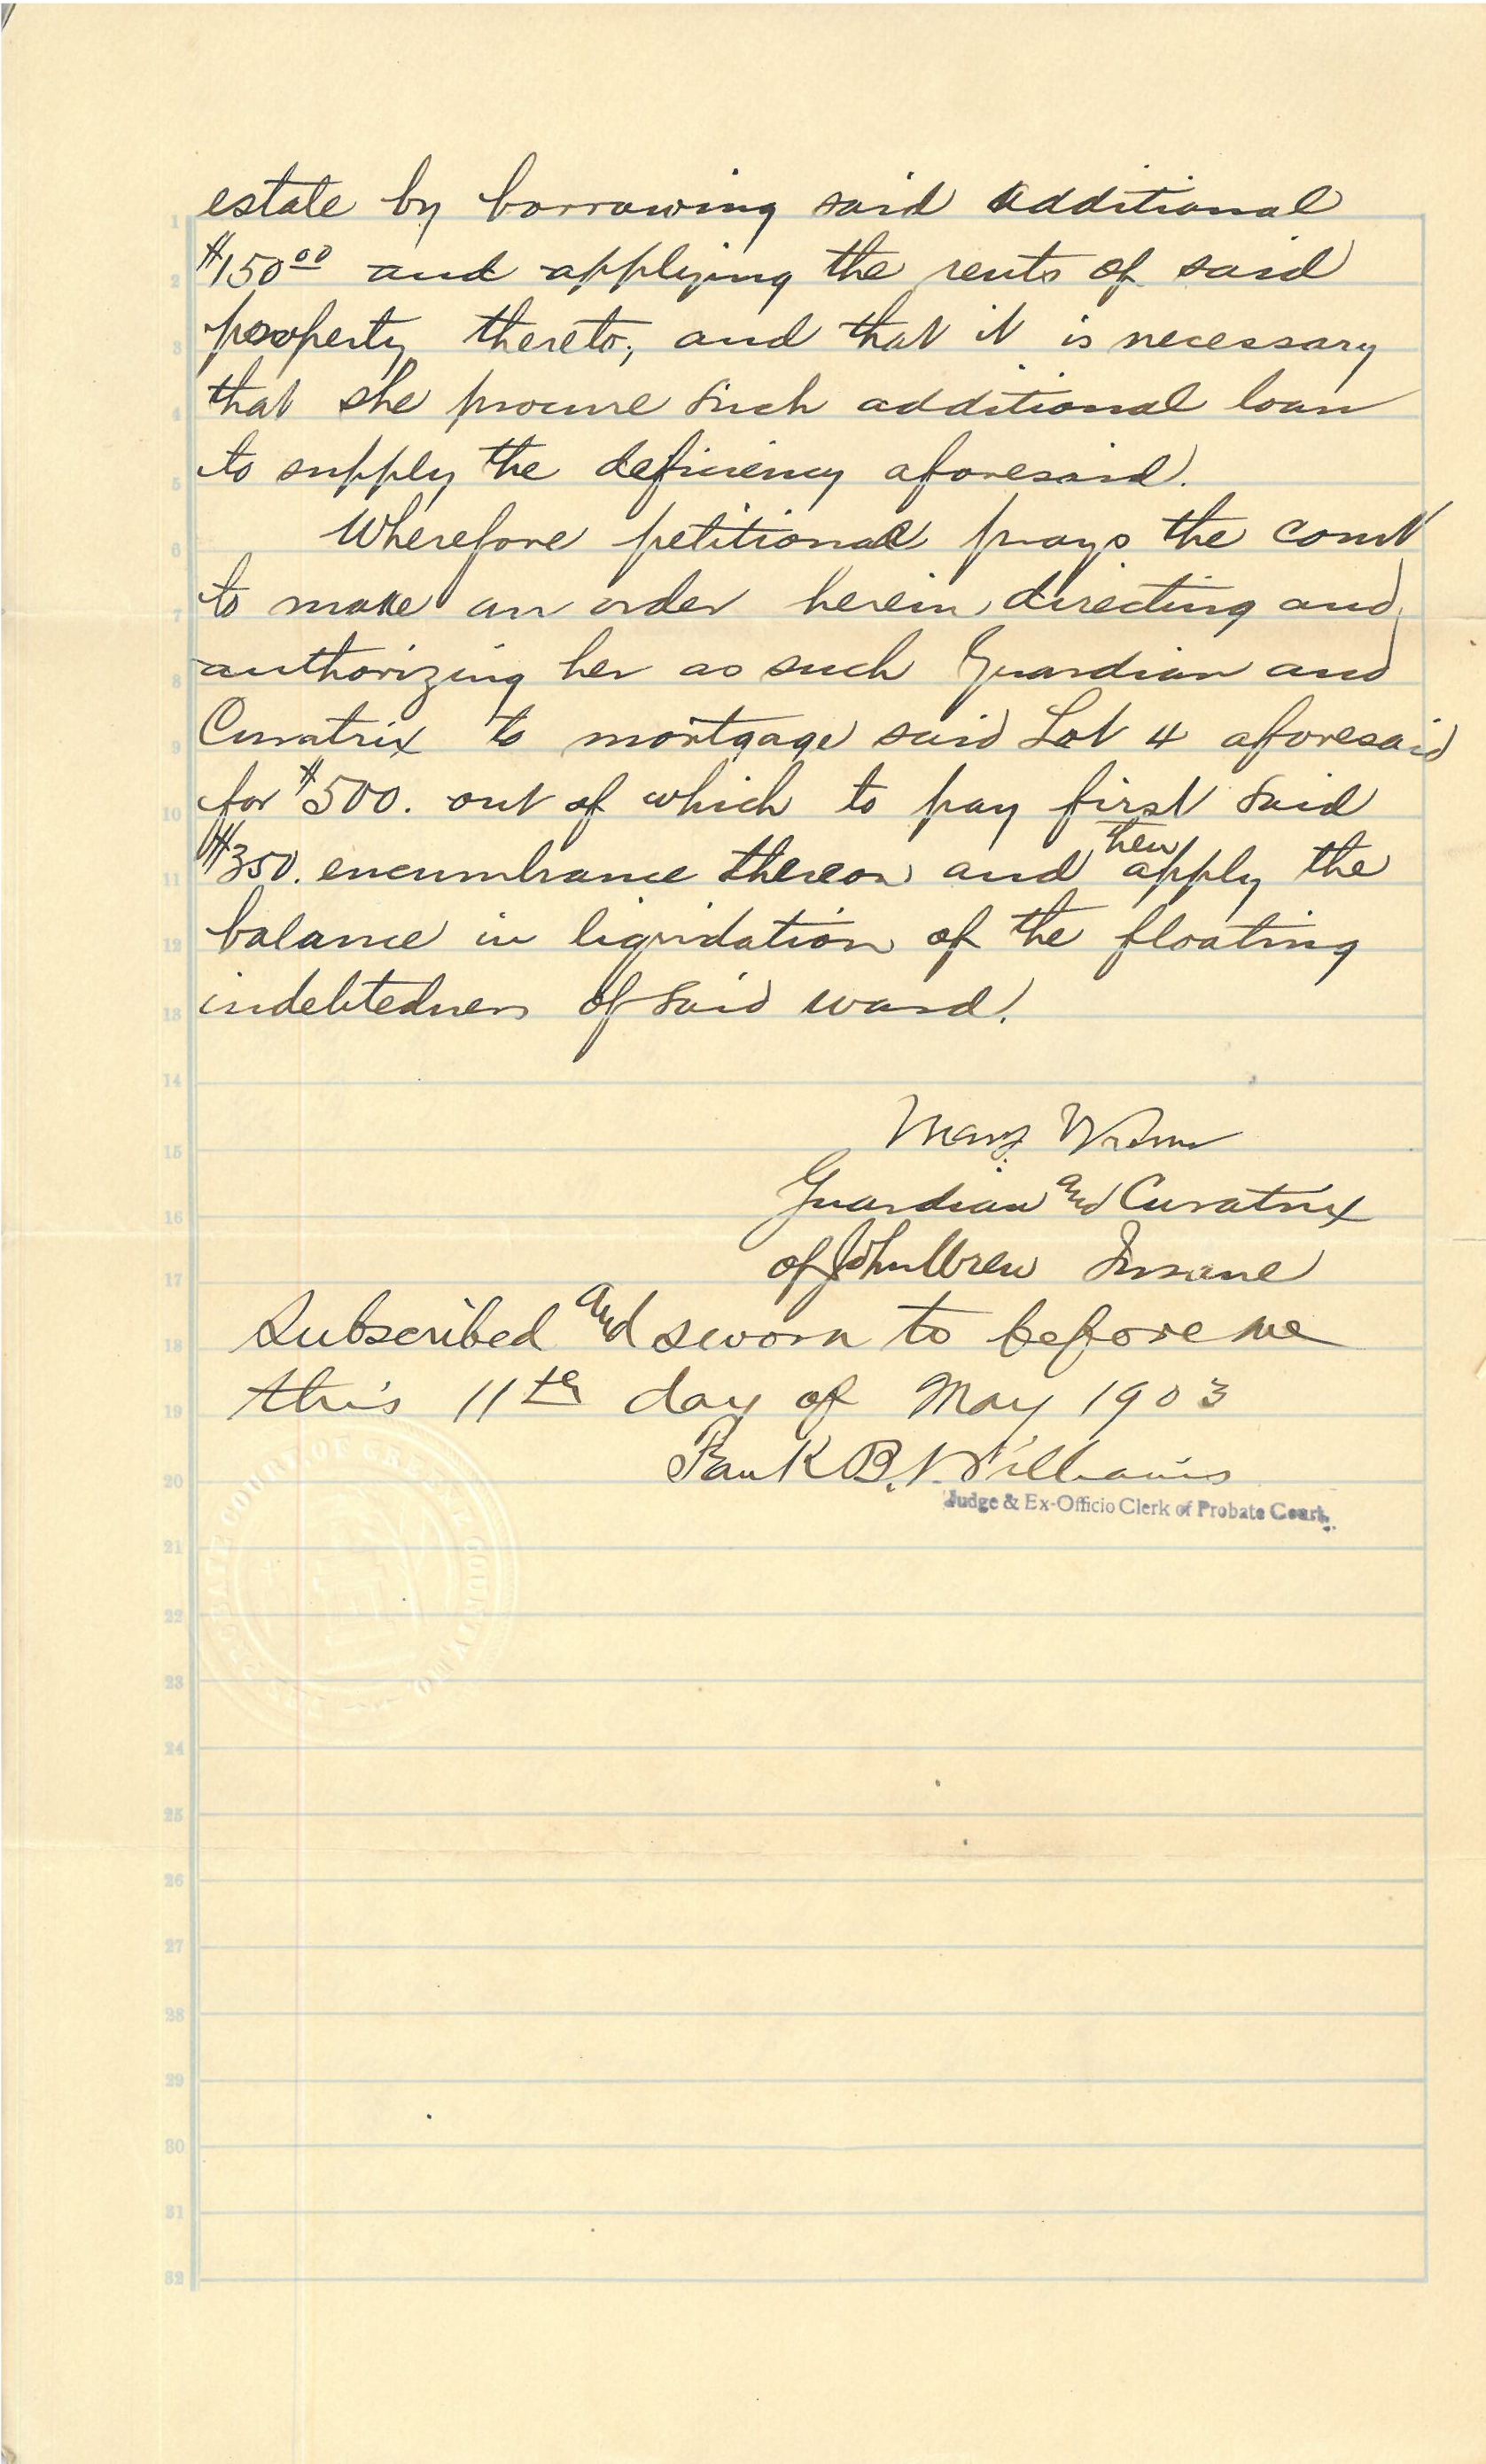 estate by borrowing said additional
$150⁰⁰ and applying the rents of said
property thereto, and that it is necessary
that she procure such additional loan
to supply the deficiency aforesaid.
Wherefore petitioner prays the court
to make an order herein directing and
authorizing her as such Guardian and
Curatrix to mortgage said Lot 4 aforesaid
for $500. out of which to pay first said
$350. encumbrance thereon and then apply the
balance in liquidation of the floating
indebtedness of said ward.
Mary
Guardian and Curatrix
of John Wren Insane
Subscribed and sworn to before me
this 11th day of May 1903
B. Williams
Judge & Ex-Officio Clerk of Probate Court.
PROBATE COURT OF GREENE COUNTY MO
1
2
3
4
5
6
7
8
9
10
11
12
13
14
15
16
17
18
19
20
21
22
23
24
25
26
27
28
29
30
31
32